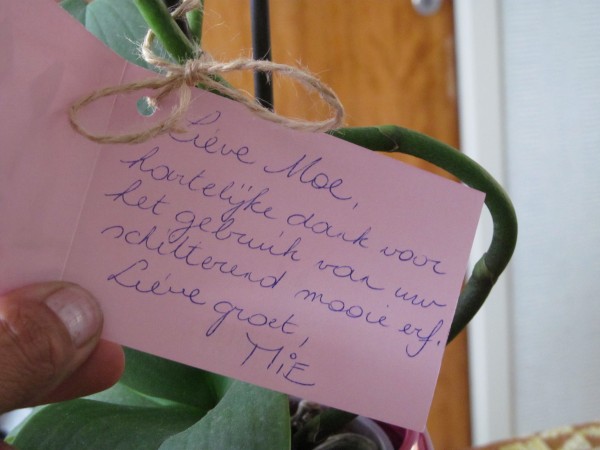 Lieve Moe,
hartelijke dank voor
het gebruik van uw
schitterend mooie erf.
Lieve groet,
MiE